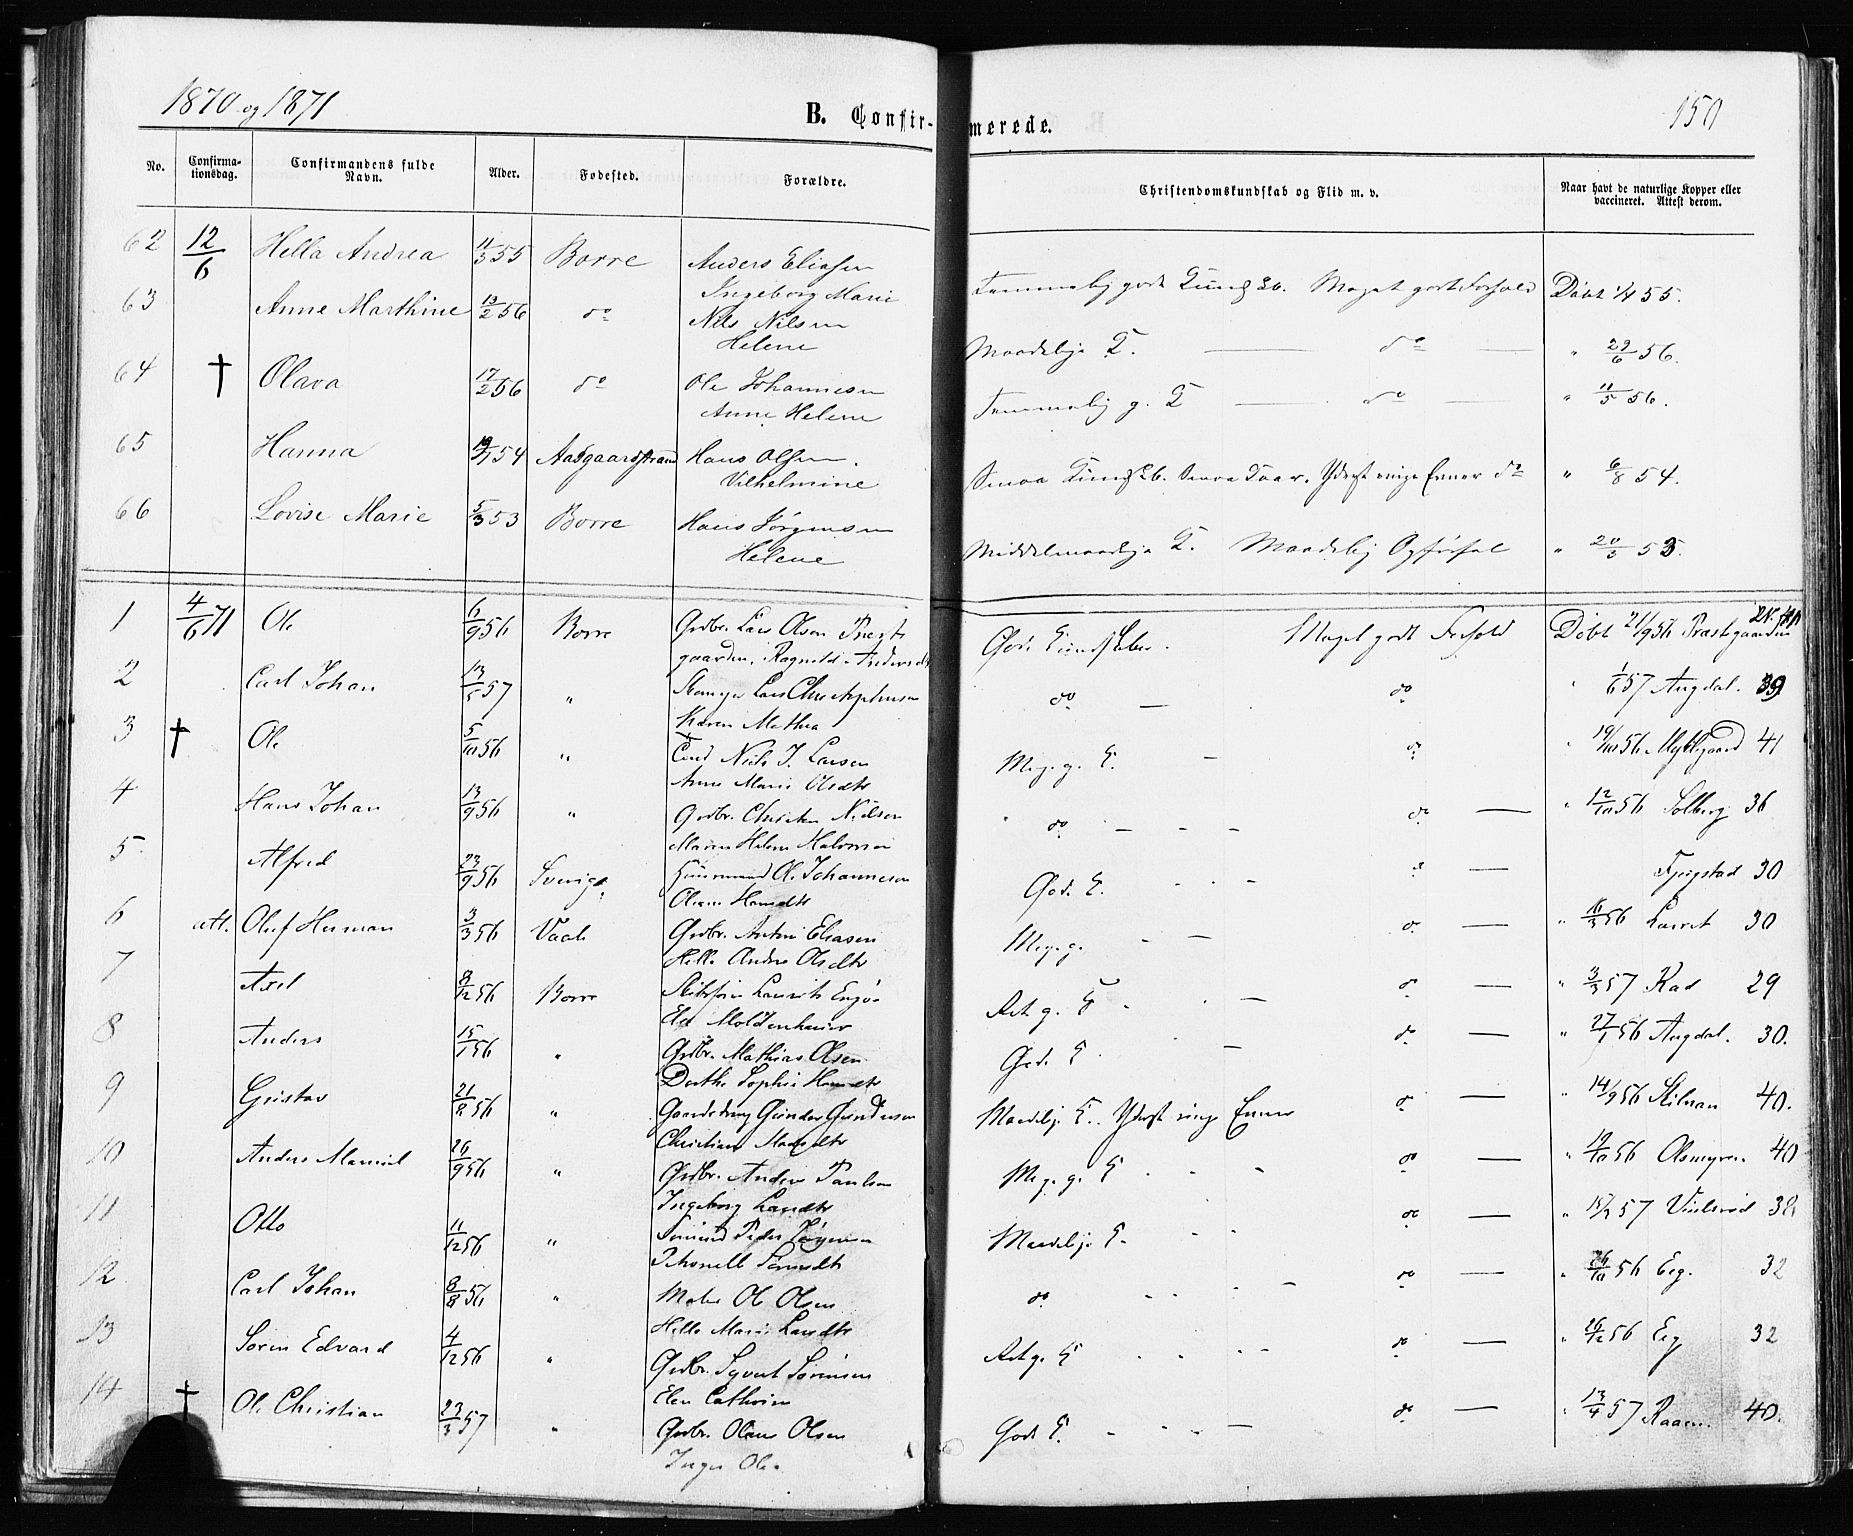 1870 og 1871
B. Confir-merede.
150
No.
Confirma-
tionsdag.
Confirmandens fulde
Navn.
Alder.
Fødested.
Forældre.
Christendomskundskab og Flid m. v.
Naar havt de naturlige Kopper eller
vaccineret. Attest derom.
62 12/6 Hella Andrea 11/3 55 Borre Anders Eliasen
Ingeborg Marie
Temmelig godt Kundsk. Meget godt Forhold Døbt 1/4 55.
63 Anne Marthine 13/2 56 do Nils Nilsen
Helene
Maadelige K. — do — " 29/6 56.
64 † Olava 17/2 56 do Ole Johannesen
Anne Helene
Temmelig g. K — do — " 11/5 56.
65 Hanna 54 Aasgaardstrand Hans Olsen.
Vilhelmine
Smaa Kundsk. Smaa Kaar. Yderst ringe Evner do " 6/8 54.
66 Lovise Marie 5/3 53 Borre Hans Jørgensen
Helene
Middelmaadige K. Maadelig Opførsel " 20/3 53.
1 4/6 71 Ole 6/9 56 Borre Grdbr. Lars Olsen Prest-
gaarden. Ragnild Andersdt
God Kundskaber. Meget godt Forhold Døbt 21/9 56 Prastgaarden
2 Carl Johan 57 " Lars Christophersen
Karen Mathea
do — do " 1/6 57 Augdal. 39
3 † Ole 5/10 56 " Niels J. Larsen
Anne Marie Olsdtr
Meg. g. K. — do " 19/10 56 Nykirgaard 41
4 Hans Johan 13/9 56 " Grdbr. Christen Nielsen
Maren Helene
do — — — do — " 12/10 56 Solberg 36
5 Alfred 23/9 56 Sverige Huusmand Ol. Johannesen
Oliane Hansdtr
God. K. — — Fyrgstad 30
6 att. Oluf Herman 3/3 56 Vaale Grdbr. Anton Eliasen
Helle Andrea Olsdtr
Meg. g. — do — " 56 30
7 Axel 8/12 56 Borre Laurits
Moldenhauer
Ret g. K — do — " 3/3 57 Rød 29
8 Anders 15/1 56 " Grdbr. Mathias Olsen
Dorthe Sophie Hansdtr
God. K — do — " 27/1 56 Augdal. 30.
9 Gustav 21/8 56 " Gunder Gundersen
Christiane
Maadelige K. Yderst ringe Evner do — " 14/9 56 40.
10 Anders Manuel 26/9 56 " Grdbr. Anders Paulsen
Ingeborg Larsdtr
Meg. g. K — do — " 56 Olsmyren. 40
11 Otto 11/12 56 " Peder Jørgensen
Maadelige K. do — " 57 38.
12 Carl Johan 8/8 56 " Ole Olsen
Helle Marie Larsdtr
do — do — " 26/10 56 Eeg. 32
13 Søren Edvard 4/12 56 " Grdbr. Syvert Sørensen
Elen Cathrine
Ret g. K — do — " 26/12 56 Eeg 32
14 † Ole Christian 23/3 57 " Grdbr. Olaus Olsen
Inger Ols.
Godt K. — do — " 13/4 57 Raaen. 40.